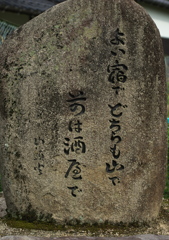 よい宿でどちらも山で
前は酒屋で